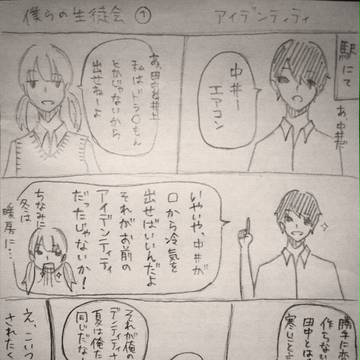 僕らの生徒会①
アイデンティティ
駅にて
あ、中井だ
中井ー
エアコン
私はドラ〇もん
とかじゃないから
出せねーよ
いやいや、中井が
口から冷気を
出せばいいんだよ
それがお前の
アイデンティティ
だったじゃないか!
ちなみに
冬は
暖房に…
勝手に
作らない
田中とは
寒いこと
それが俺の
夏は俺た
同じだな
えっこいつ
されたく